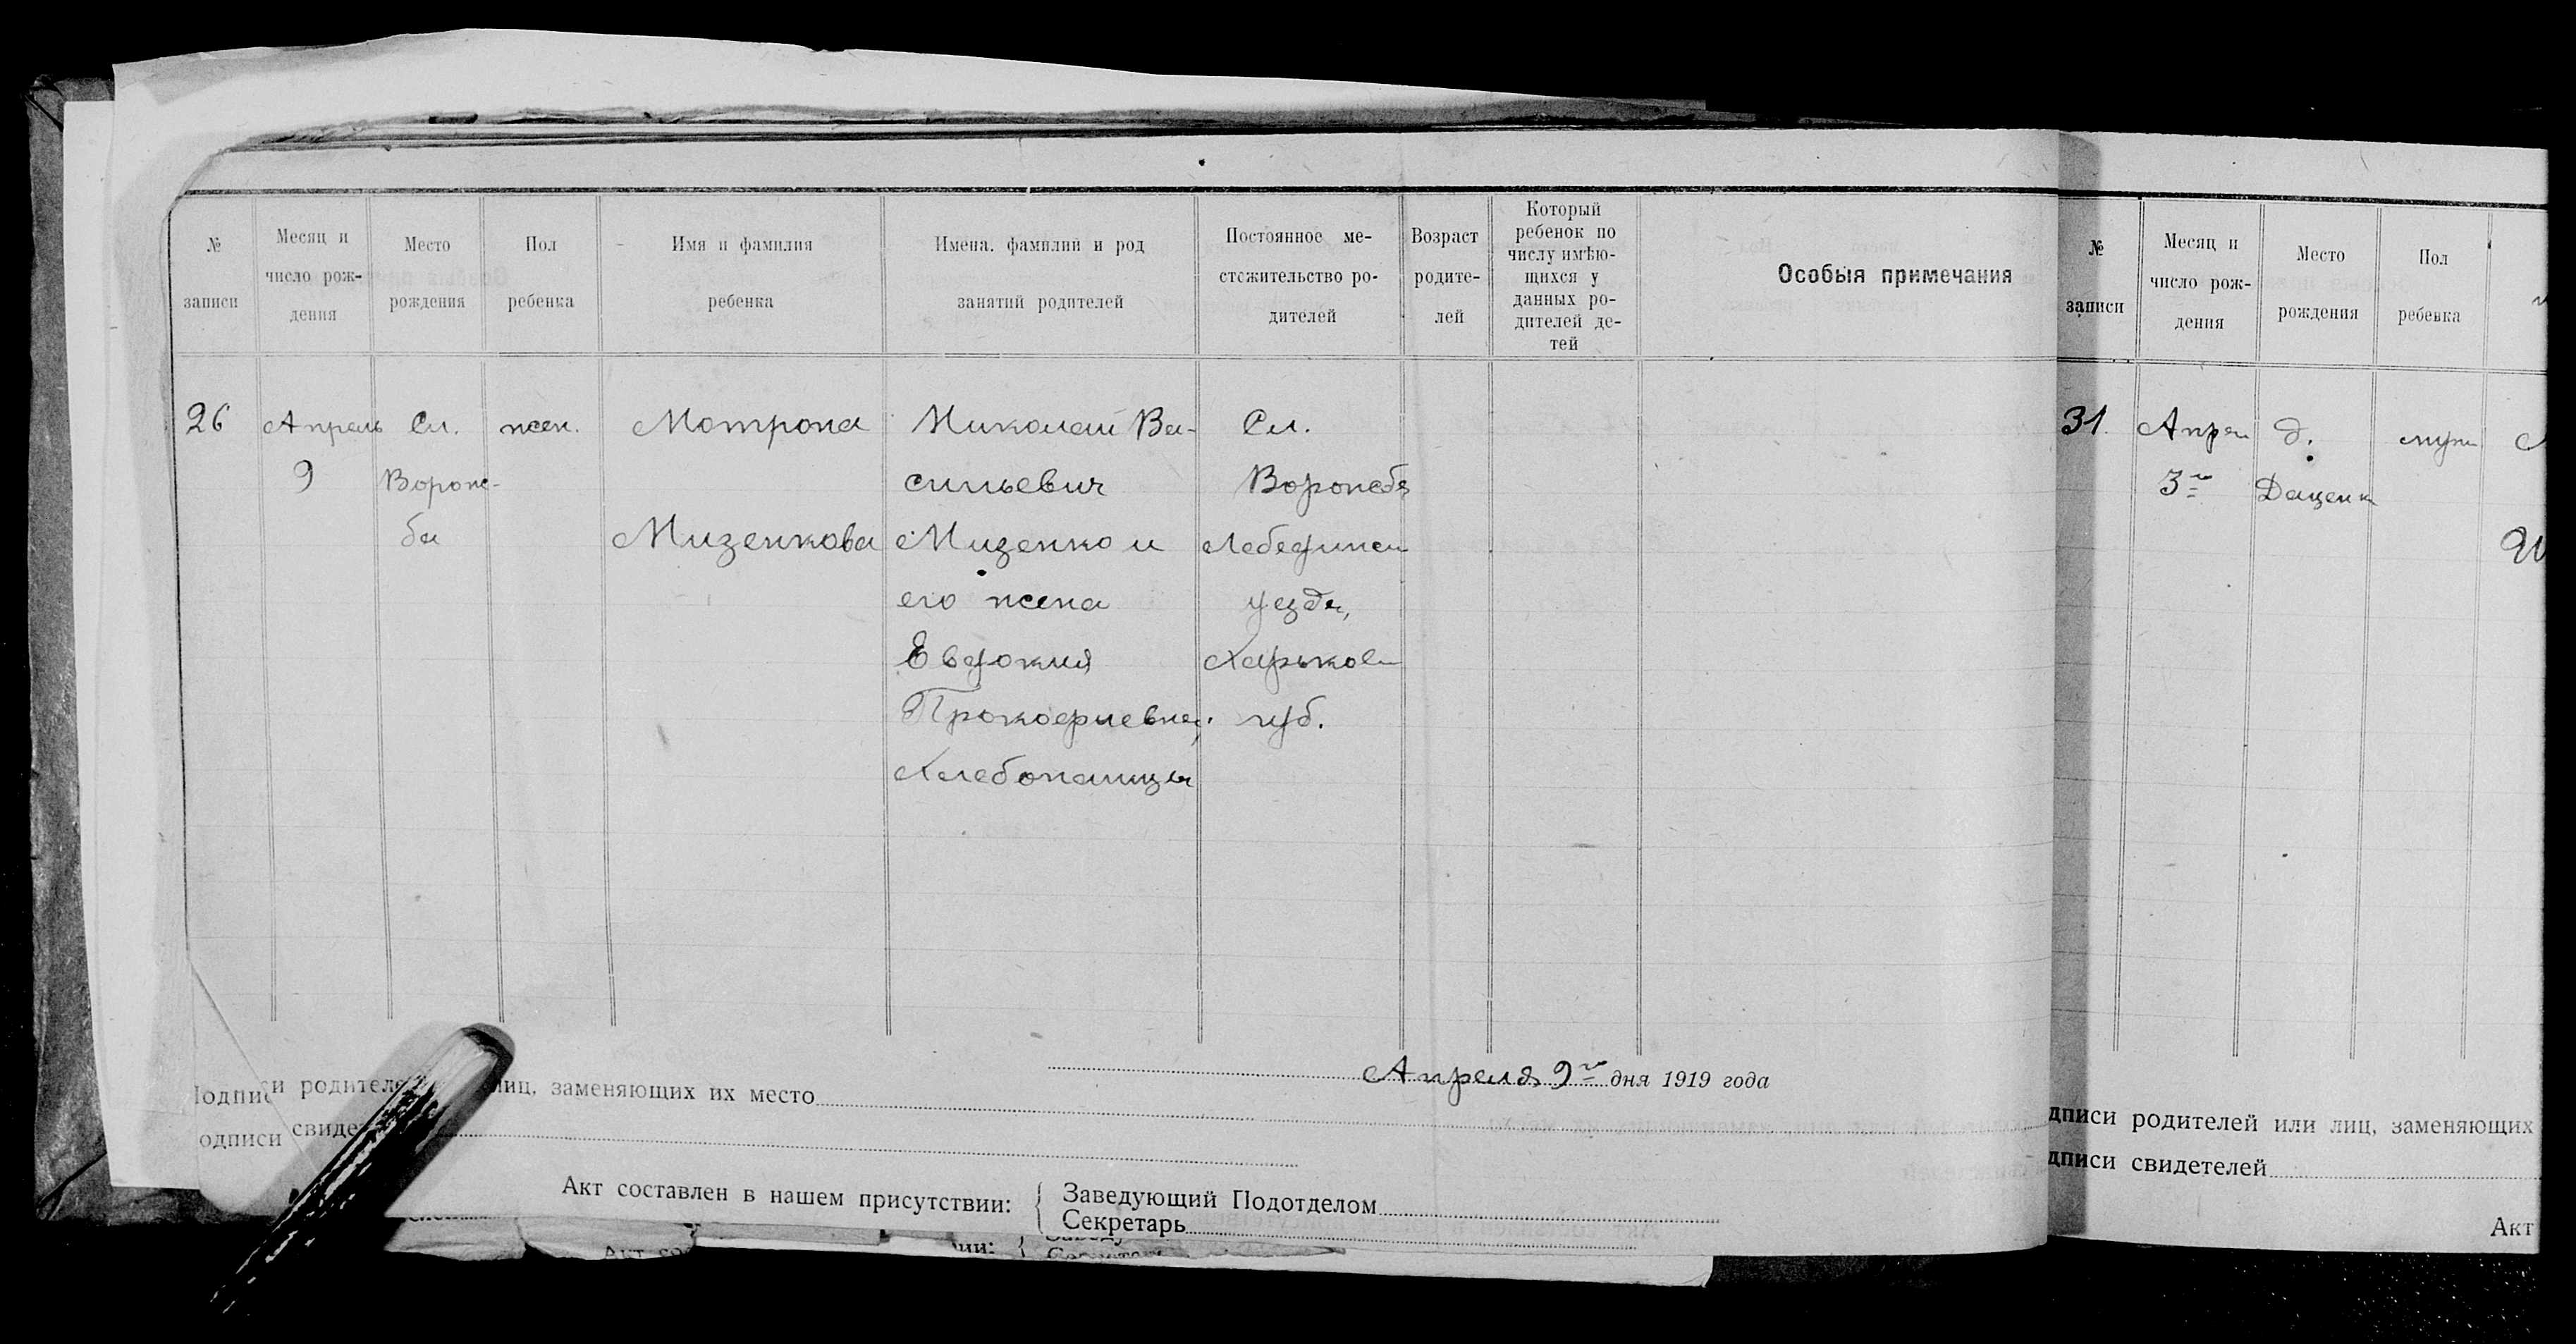 №
записи
Месяц и
число рож-
дения
Место
рождения
Пол
ребенка
Имя и фамилия
ребенка
Имена, фамилии и род
занятий родителей
Постоянное ме-
стожительство ро-
дителей
Возраст
родите-
лей
Который
ребенок по
числу имѣю-
щихся у
данных ро-
дителей де-
тей
Особыя примечания
26
Апрель
9
Сл.
Вороже-
ба
жен.
Мотрона
Мизенкова
Николай Ва-
сильевич
Мизенко и
его жена
Евдокия
Прокофиевна;
Хлебопашцы
Сл.
Ворожба
Лебединск
уезда,
Харьков
губ.
Апреля 9го дня 1919 года
Подписи родителей лиц, заменяющих их место
одписи свидет
Акт составлен в нашем присутствии:
Заведующий Подотделом
Секретарь
№
записи
Месяц и
число рож-
дения
Место
рождения
Пол
ребенка
31.
Апрел
3го
д.
Даценк
муж
дписи родителей или лиц, заменяющих
дписи свидетелей
Акт